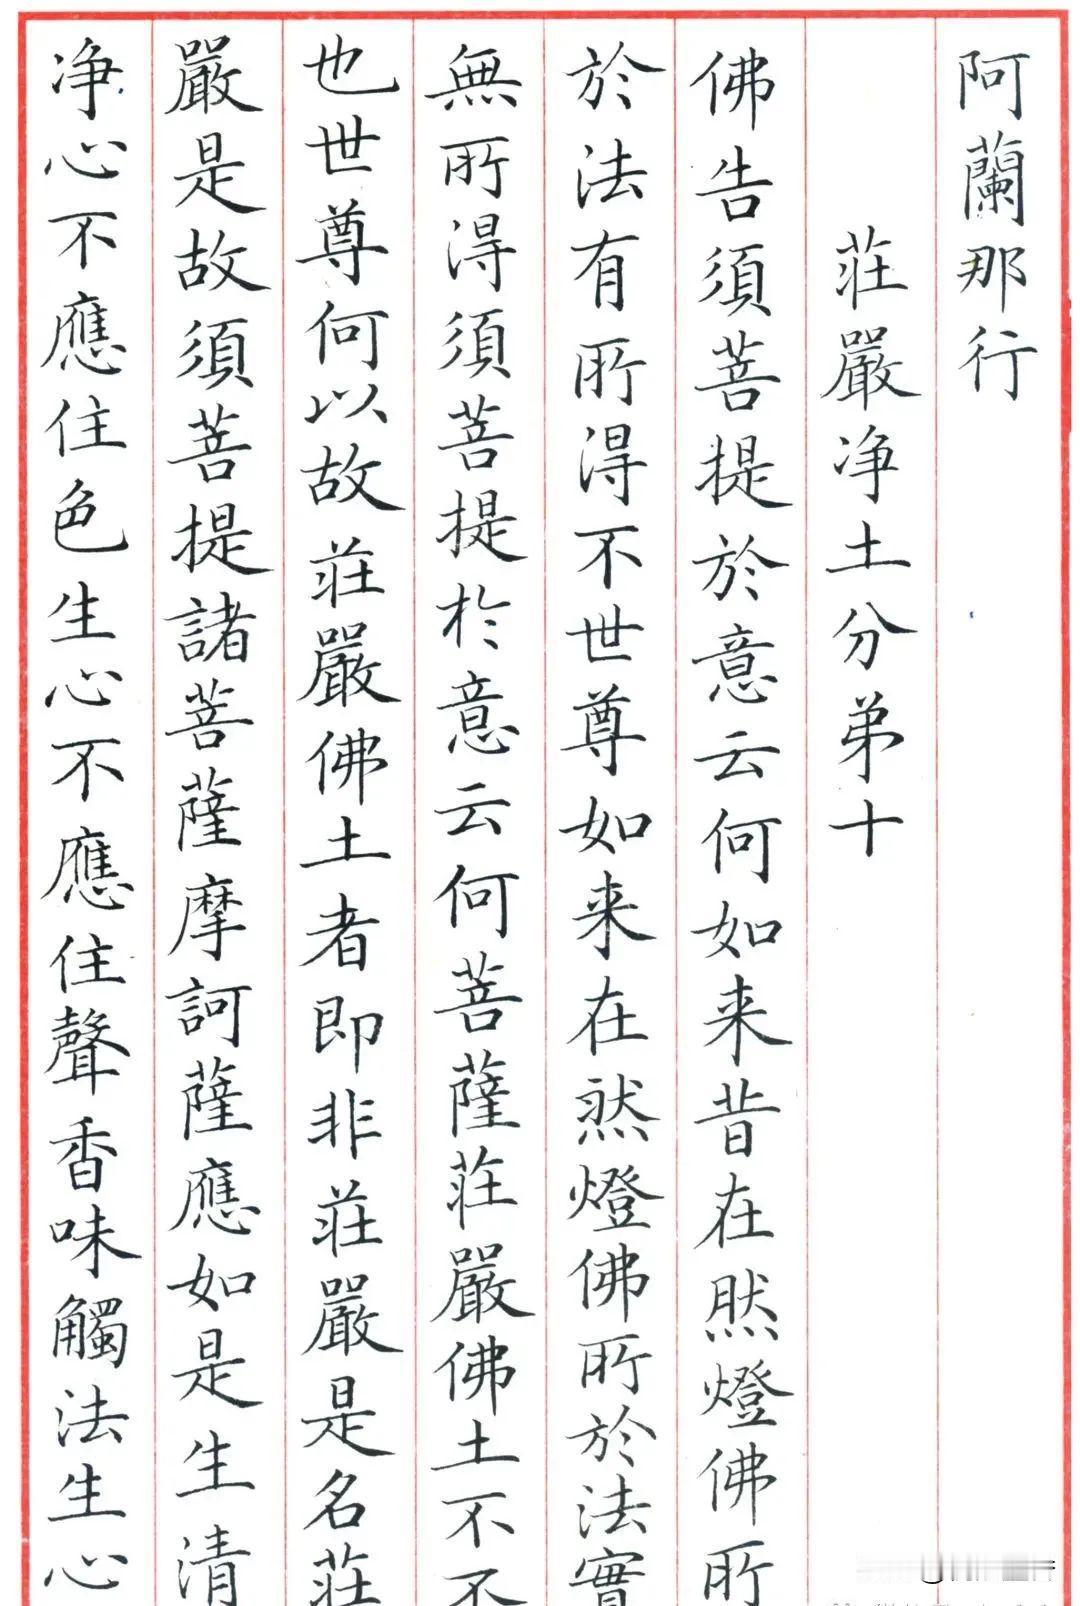 阿蘭那行
莊嚴净土分弟十
佛告須菩提於意云何如来昔在然燈佛所
於法有所得不世尊如来在然燈佛所於法實
無所得須菩提於意云何菩薩莊嚴佛土不不
也世尊何以故莊嚴佛土者即非莊嚴是名莊
嚴是故須菩提諸菩薩摩訶薩應如是生清
净心不應住色生心不應住聲香味觸法生心